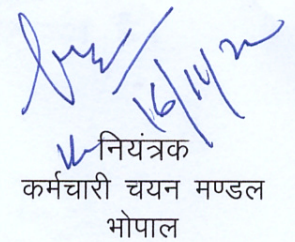 16/11/22
नियंत्रक
कर्मचारी चयन मण्डल
भोपाल